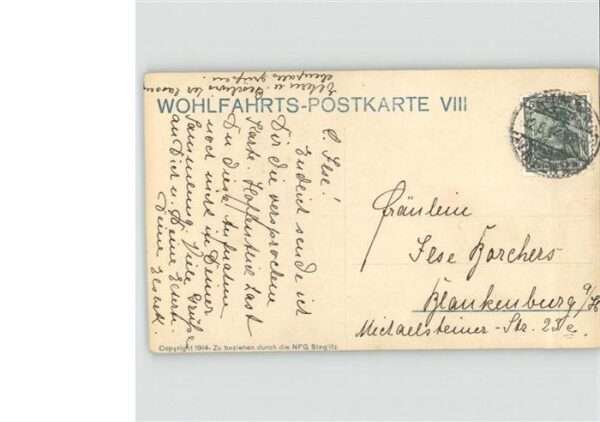 WOHLFAHRTS-POSTKARTE VIII
L. Ilse!
Endlich sende ich
Dir die versprochene
Karte. Hoffentlich hast
Du diese Aufnahme
noch nicht in Deiner
Sammlung. Viele Grüße
an Dich u. Deine
Deine
Eltern u. lassen
ebenfalls grüßen.
Fräulein
Ilse Borchers
Blankenburg a/H
Michaelsteiner-Str.
Copyright 1914. Zu beziehen durch die NPG Steglitz.